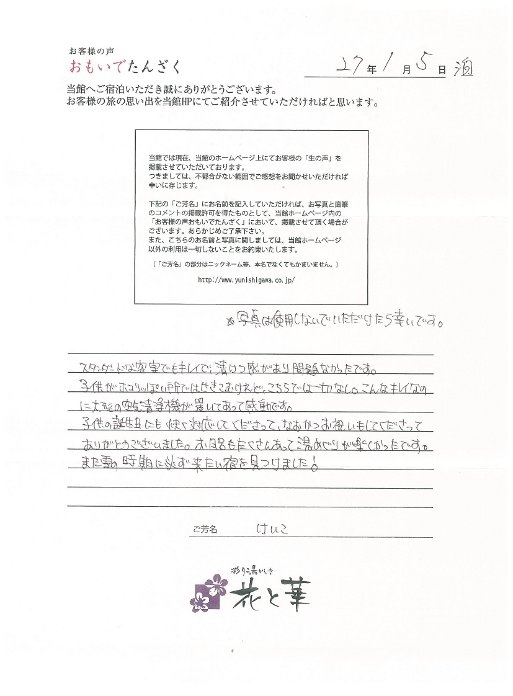 お客様の声
おもいでたんざく
27年1月5日 泊
当館へご宿泊いただき誠にありがとうございます。
お客様の旅の思い出を当館HPにてご紹介させていただければと思います。
当館では現在、当館のホームページ上にてお客様の「生の声」を
掲載させていただいております。
つきましては、不都合がない範囲でご感想をお聞かせいただければ
幸いに存じます。
下記の「ご芳名」にお名前を記入していただければ、お写真と直筆
のコメントの掲載許可を得たものとして、当館ホームページ内の
「お客様の声おもいでたんざく」において、掲載させて頂く場合が
ございます。あらかじめご了承下さい。
また、こちらのお名前と写真に関しましては、当館ホームページ
以外の利用は一切しないことをお約束いたします。
(「ご芳名」の部分はニックネーム等、本名でなくてもかまいません。)
http://www.yunishigawa.co.jp/
※写真は使用しないでいただけたら幸いです。
スタンダードな客室でもキレイで、清けつ感があり問題なかったです。
子供がホコリっぽい所ではせきこむけれど、こちらでは一切なし。こんなキレイなの
に大きめの空気清浄機が置いてあって感動です。
子供の誕生日にも快く対応してくださって、なおかつお祝いもしてくださって
ありがとうございました。お風呂もたくさんあって湯めぐりが楽しかったです。
また雪の時期に必ず来たい宿を見つけました!
ご芳名 けいこ
彩り湯かしき
花と華